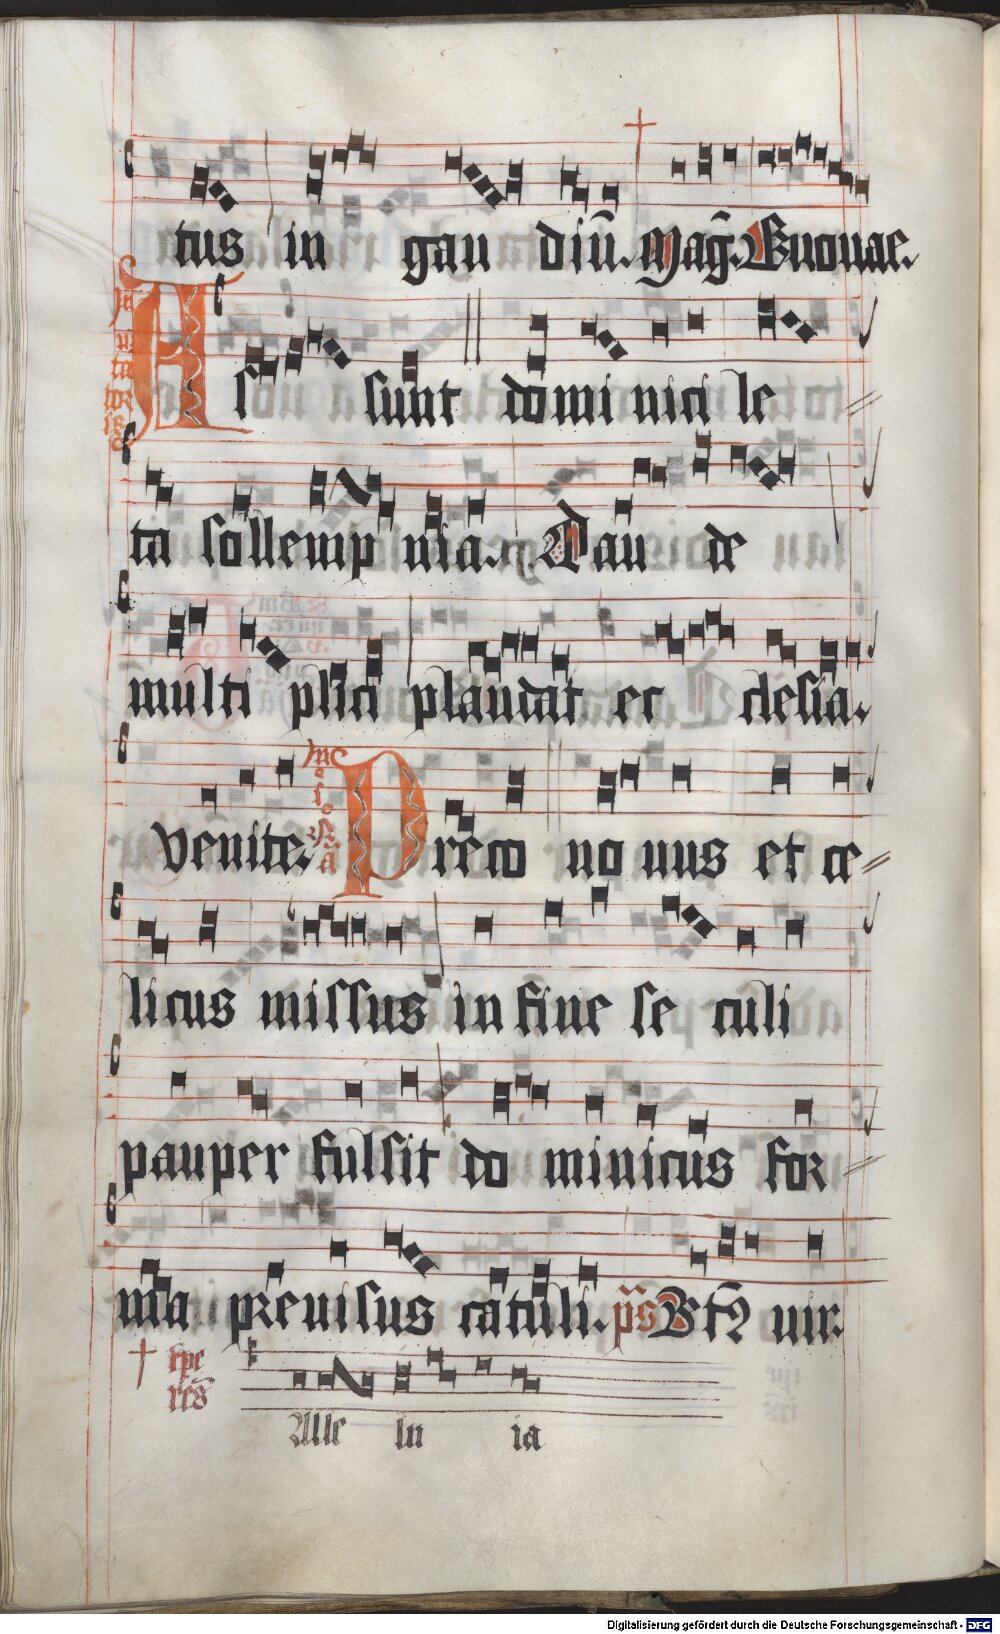 tus in gau diū. Mag̃. Euouae.
Inuitatoriũ
As sunt domi nici le⸗
ta sollemp nia. Lau de
multi plici plaudat ec clesia.
venite. Preco no uus et ce⸗
licus missus in fine se culi
pauper fulsit do minicus for⸗
ma preuisus catuli. p̃s Bt9 uir.
tpe res̃
Alle lu ia
Digitalisierung gefördert durch die Deutsche Forschungsgemeinschaft - DFG